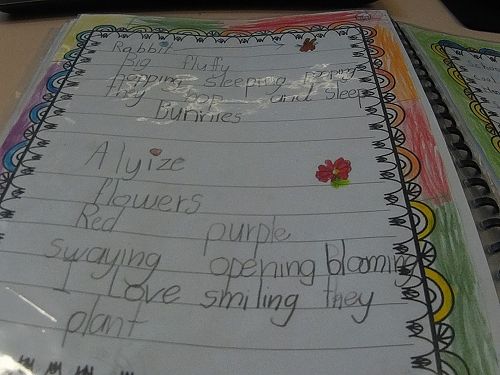 Rabbit
Big fluffy
hopping sleeping
They hop and sleep
Bunnies
Alyize
flowers
Red purple
swaying opening blooming
I Love smiling they
plant